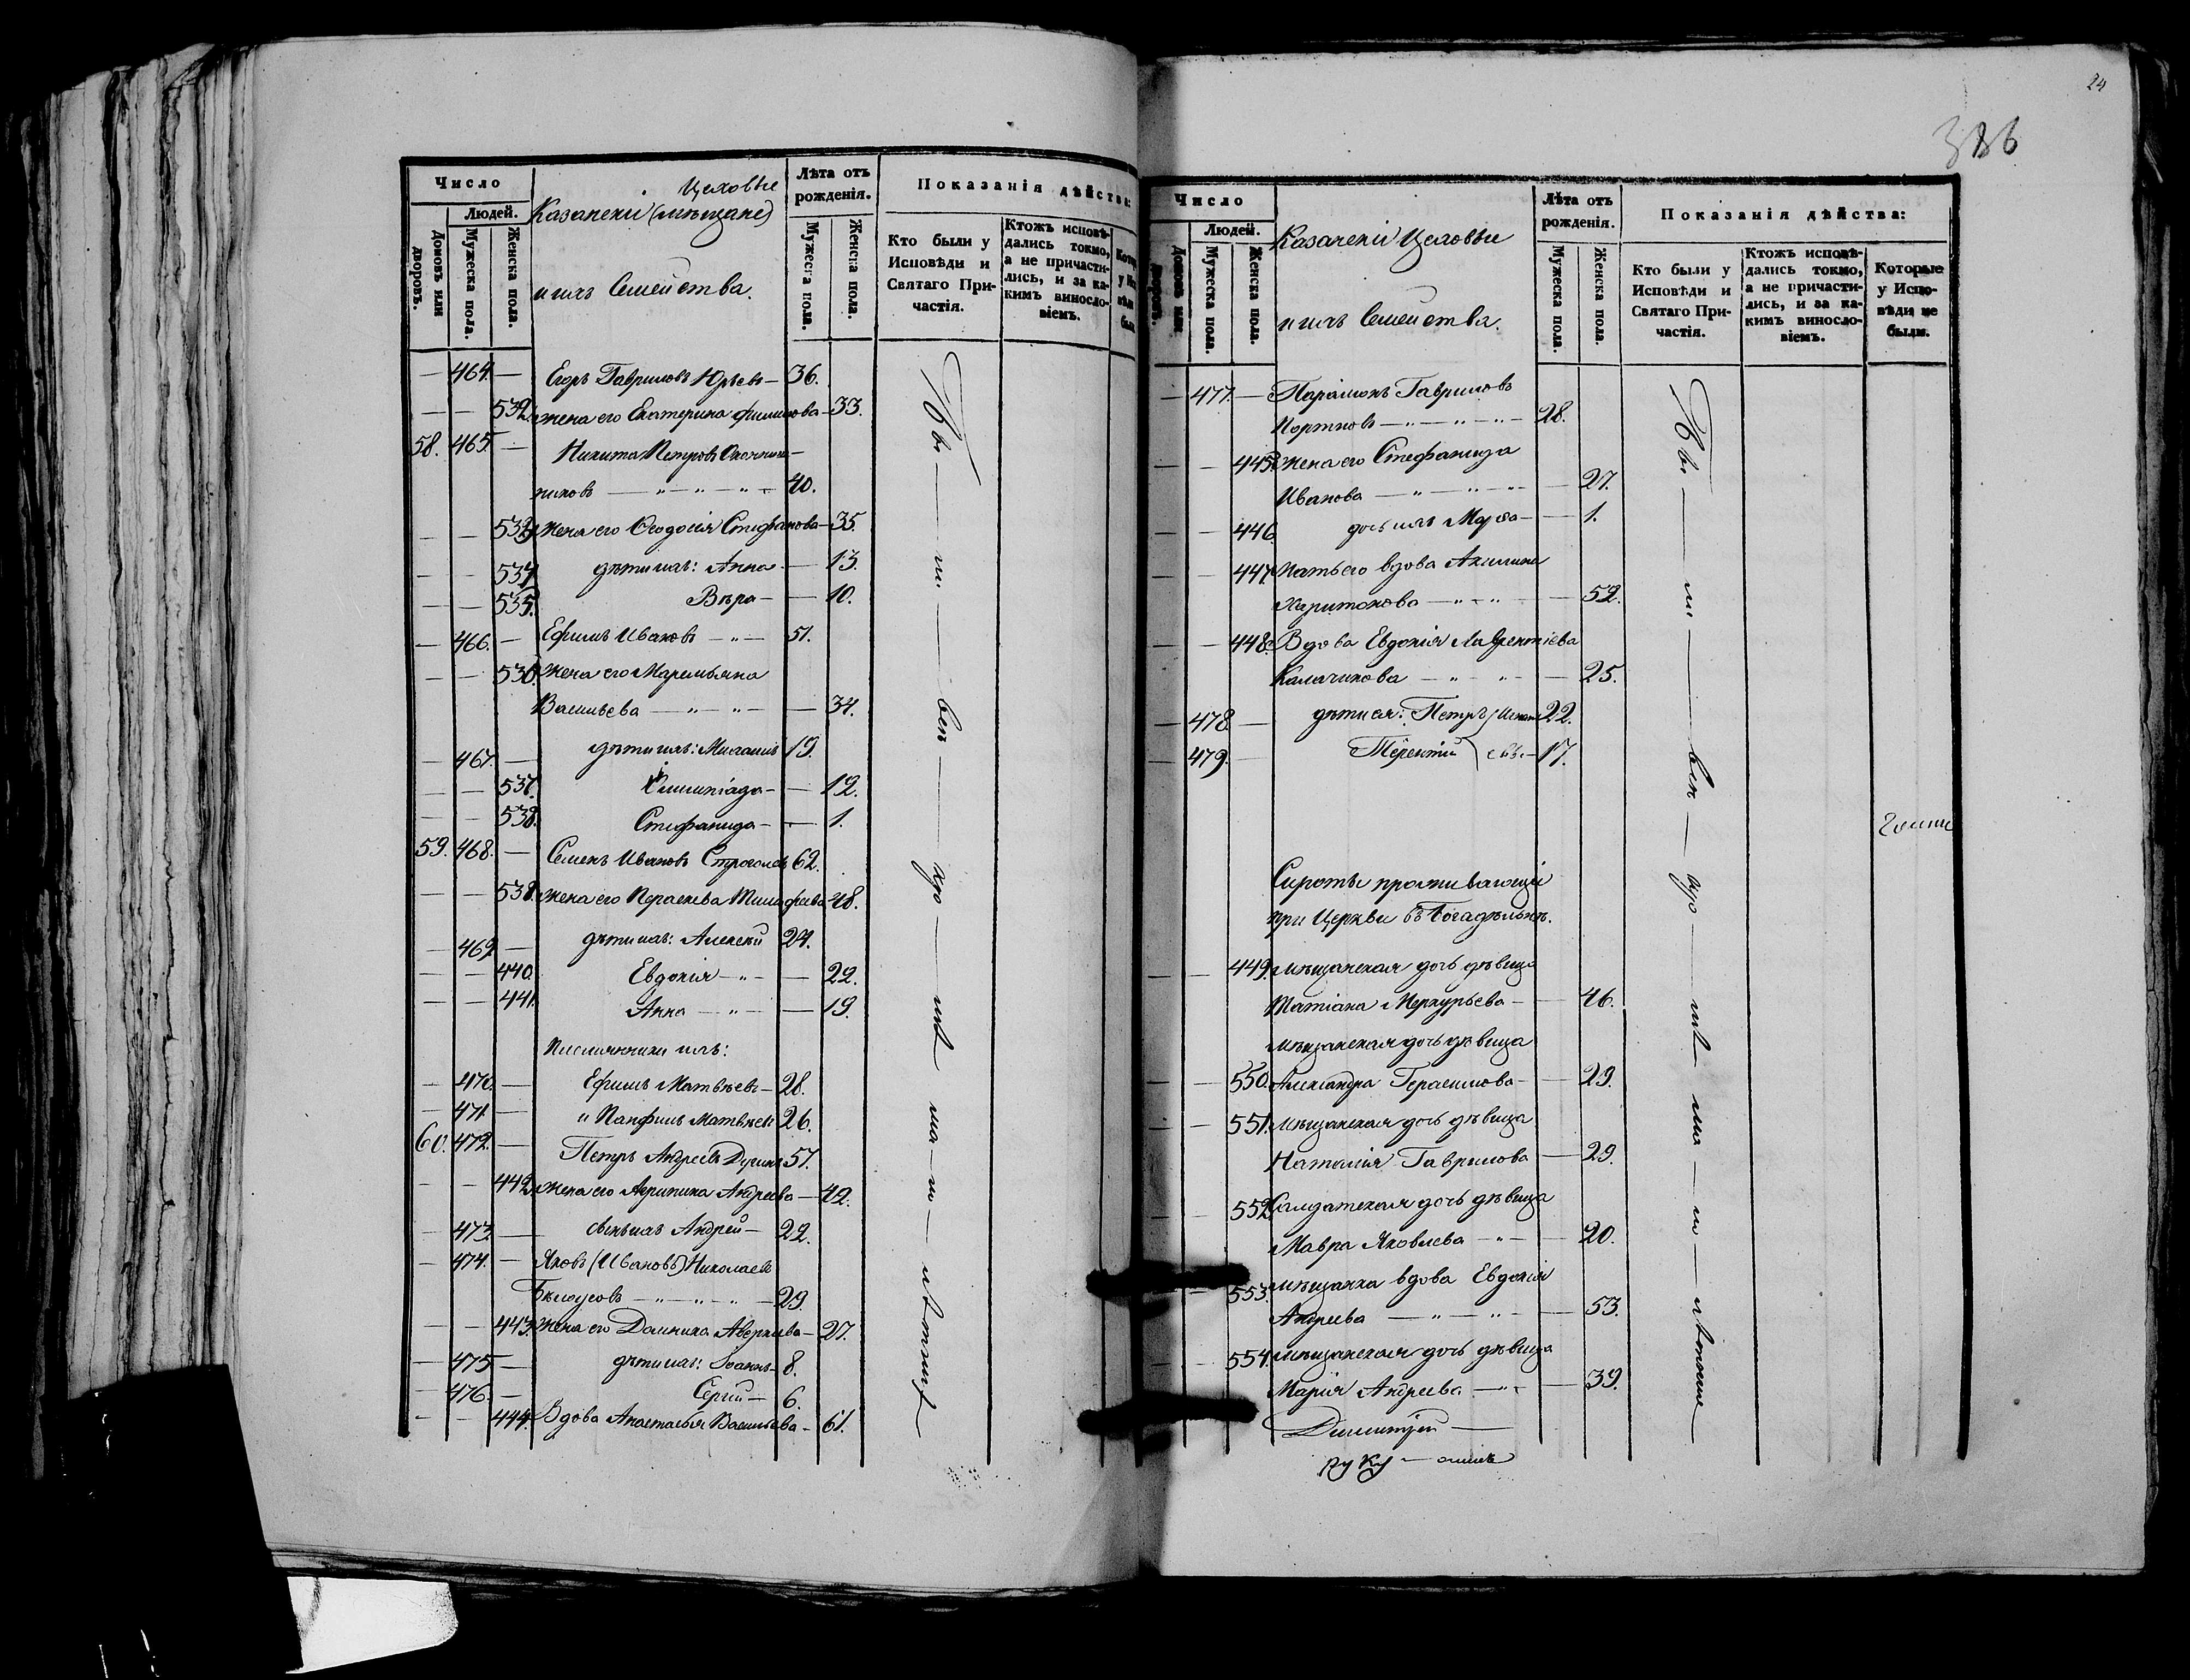 24
386
Число
Людей.
Домовъ или дворовъ.
Мужеска пола.
Женска пола.
Цеховые
Казанскіи (мѣщане)
и ихъ семейства.
Лѣта отъ рожденія.
Мужеска пола.
Женска пола.
Показанія дѣйства:
Кто были у Исповѣди и Святаго Причастія.
Ктожъ исповѣдались токмо, а не причастились, и за какимъ винословіемъ.
— 464. — Егоръ Гавриловъ Юрьевъ — 36.
— — 532. жена его Екатерина Филипова — 33.
58. 465. — Никита Петровъ
никовъ — „ — „ — „ — 40.
— — 533. жена его Ѳеодосія Стефанова — 35.
— — 534. дѣти ихъ: Анна — — 13.
— — 535. Вѣра — — 10.
— 466. — Ефимъ Ивановъ — „ — 51.
— — 536. жена его Маремьяна
Васильева — „ — „ — — 34.
— 467. — дѣти ихъ: 19.
— — 537. Олимпіада — — 12.
— — 538. Стефанида — — 1.
59. 468. — Семенъ Ивановъ 62.
— — 538. жена его Параскева 48.
— 469. — дѣти ихъ: Алексѣй 24.
— — 440. Евдокія — „ — — 22.
— — 441. Анна — „ — — 19.
Племянники ихъ:
— 470. — Ефимъ Матвѣевъ — 28.
— 471. — и Панфилъ Матвѣевъ 26.
60. 472. — Петръ Андреевъ 57.
— — 442. жена его Агрипина Андреева — 42.
— 473. — сынъ ихъ Андрей — 22.
— 474. — Яковъ (Ивановъ) Николаевъ
Бѣлоусовъ — „ — „ — „ — 29.
— — 443. жена его Домника Аверкиева — 27.
— 475. — дѣти ихъ: Іоаннъ — 8.
— 476. — Сергій — 6.
— — 444. Вдова Анастасья Васильева — 61.
Число
Людей.
Мужеска пола.
Женска пола.
Казанскіи Цеховые
и ихъ семейства.
Лѣта отъ рожденія.
Мужеска пола.
Женска пола.
Показанія дѣйства:
Кто были у Исповѣди и Святаго Причастія.
Ктожъ исповѣдались токмо, а не причастились, и за какимъ винословіемъ.
Которые у Исповѣди не были.
— 477. — Парамонъ Гавриловъ
Портновъ — „ — „ — „ — 28.
— — 445. жена его Стефанида
Иванова — „ — „ — „ — 27.
— — 446. дочь ихъ Марѳа — — 1.
— — 447. Мать его вдова Акилина
Харитонова — „ — „ — 52.
— — 448. Вдова Евдокія Лаврентіева
Калачикова — „ — „ — — 25.
— 478. — дѣти ея: Петръ 22.
— 479. — Терентій 17.
Сироты проживающіи
при Церкви въ Богадѣльнѣ.
— — 449. мѣщанская дочь дѣвица
Татіана Меркурьева — — 46.
мѣщанская дочь дѣвица
— — 550. Александра Герасимова — — 29.
— — 551. мѣщанская дочь дѣвица
Наталія Гаврилова — 29.
— — 552. Салдатская дочь дѣвица
Мавра Яковлева — „ — — 20.
— 553. мѣщанка вдова Евдокія
Андреева — „ — „ — — 53.
— — 554. мѣщанская дочь дѣвица
Марія Андреева — „ — — 39.
руку